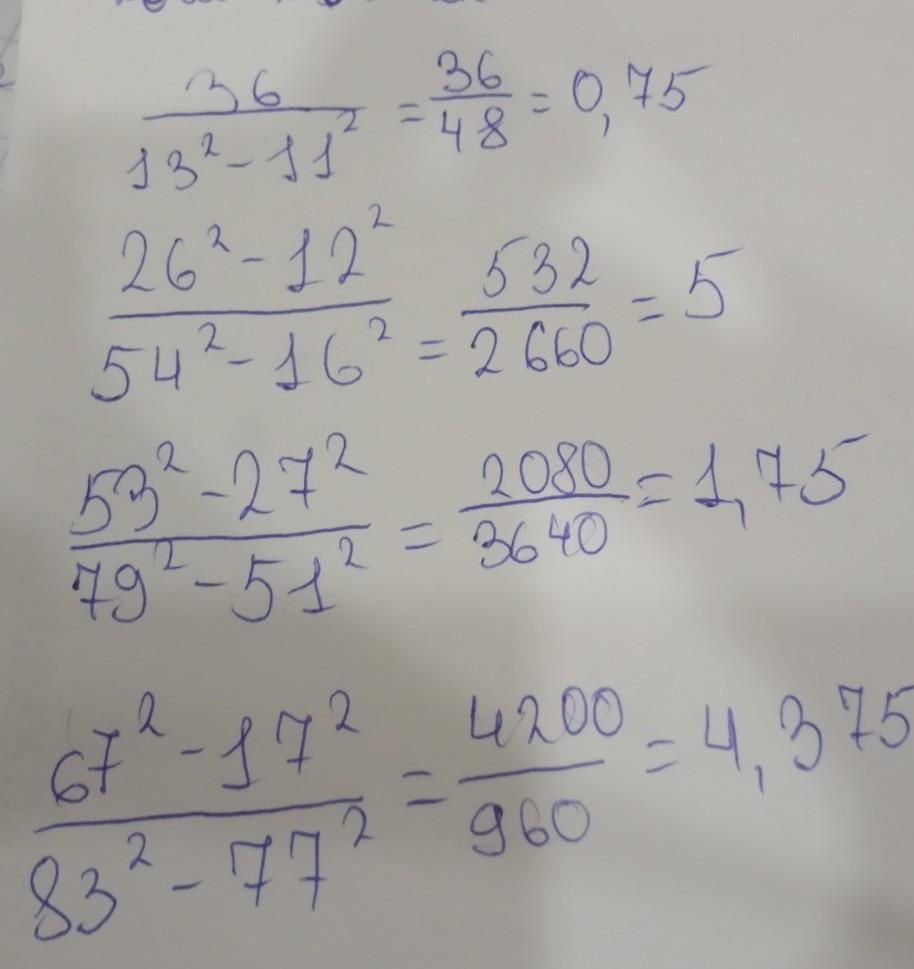 36 / 13² - 11² = 36 / 48 = 0,75
26² - 12² / 54² - 16² = 532 / 2660 = 5
53² - 27² / 79² - 51² = 2080 / 3640 = 1,75
67² - 17² / 83² - 77² = 4200 / 960 = 4,375